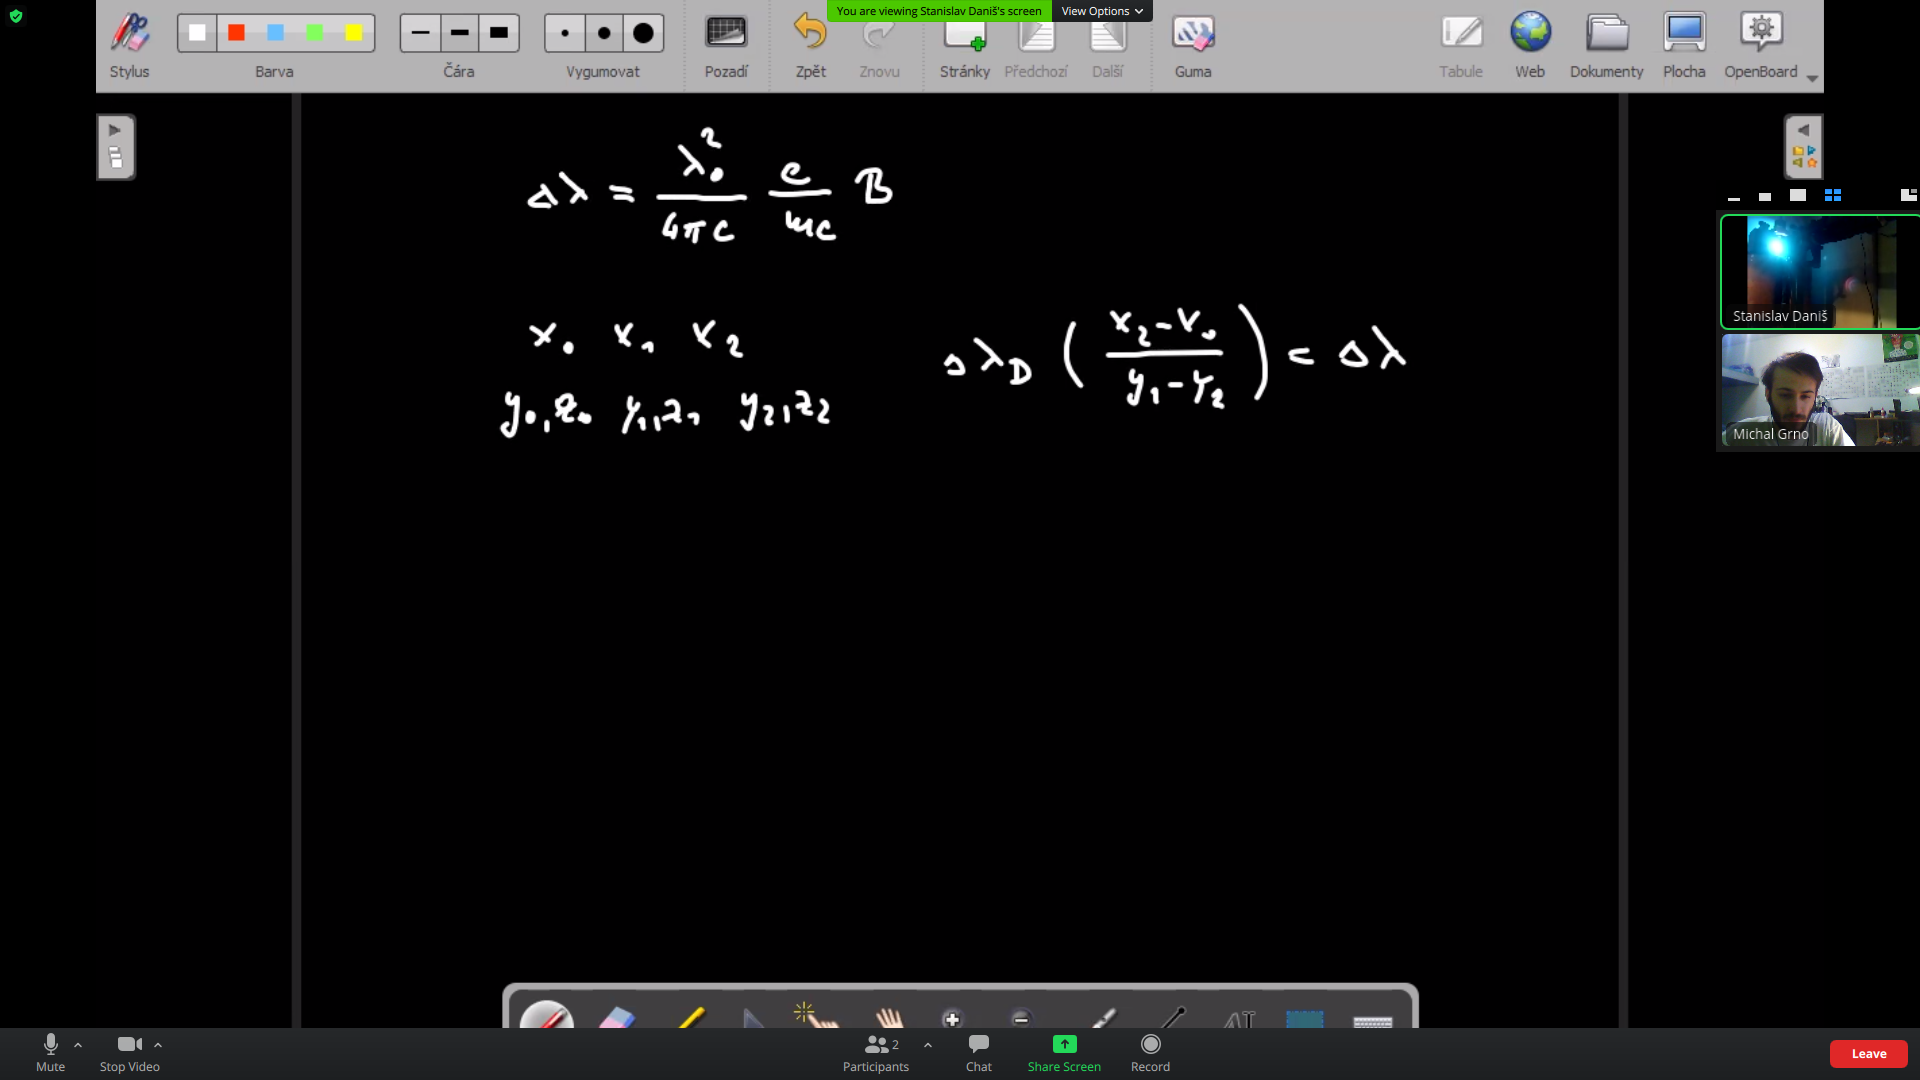 You are viewing Stanislav Daniš's screen View Options
Stylus Barva Čára Vygumovat Pozadí Zpět Znovu Stránky Předchozí Další Guma Tabule Web Dokumenty Plocha OpenBoard
Δλ = λ₀² / 4πc e / mc B
x₀ x₁ x₂
y₀,z₀ y₁,z₁ y₂,z₂
Δλ_D ( x₂-x₀ / y₁-y₂ ) = Δλ
Stanislav Daniš
Michal Grno
Mute Stop Video Participants 2 Chat Share Screen Record Leave